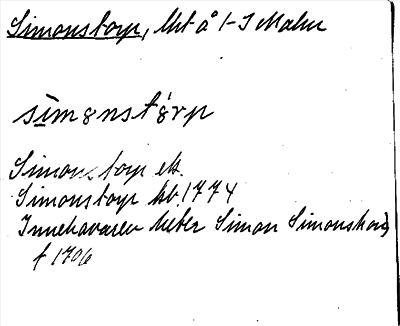 Simonstorp, lht å 1-I Malm
sìmonstórp
Simonstorp ek.
Simonstorp hb. 1774
Innehavaren heter Simon Simonsson
f 1706